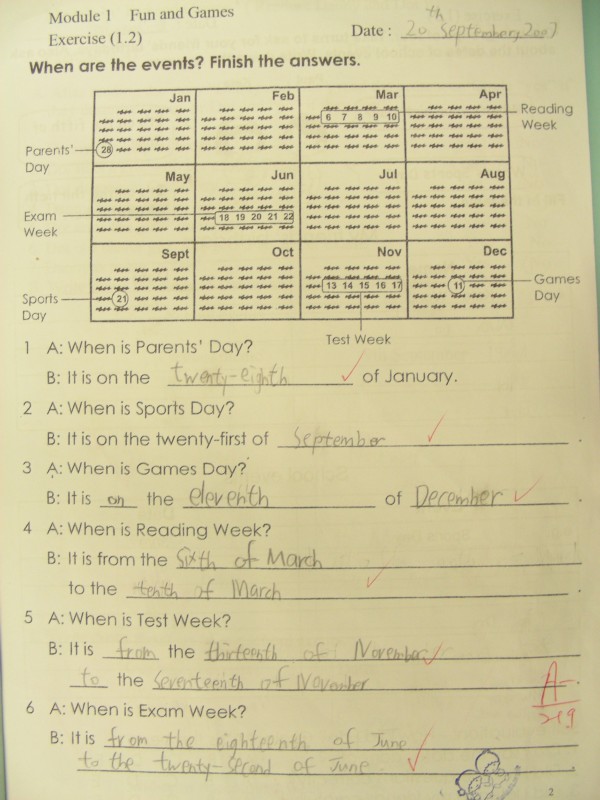 Module 1 Fun and Games
Exercise (1.2)
Date : 20th September, 2007
When are the events? Finish the answers.
Jan Feb Mar Apr
6 7 8 9 10
Reading
Week
28
Parents'
Day
May Jun Jul Aug
18 19 20 21 22
Exam
Week
Sept Oct Nov Dec
13 14 15 16 17
11
Games
Day
21
Sports
Day
Test Week
1 A: When is Parents' Day?
B: It is on the twenty-eighth of January.
2 A: When is Sports Day?
B: It is on the twenty-first of September .
3 A: When is Games Day?
B: It is on the eleventh of December .
4 A: When is Reading Week?
B: It is from the Sixth of March
to the tenth of March .
5 A: When is Test Week?
B: It is from the thirteenth of November
to the Seventeenth of November .
6 A: When is Exam Week?
B: It is from the eighteenth of June
to the twenty-Second of June .
A-
2